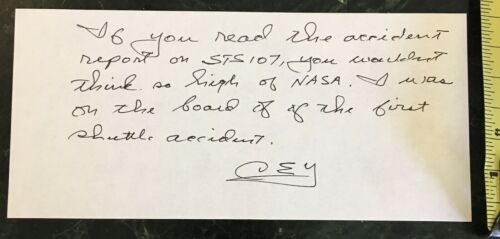 If you read the accident
report on STS 107, you wouldnt
think so high of NASA. I was
on the board of of the first
shuttle accident.
CEY